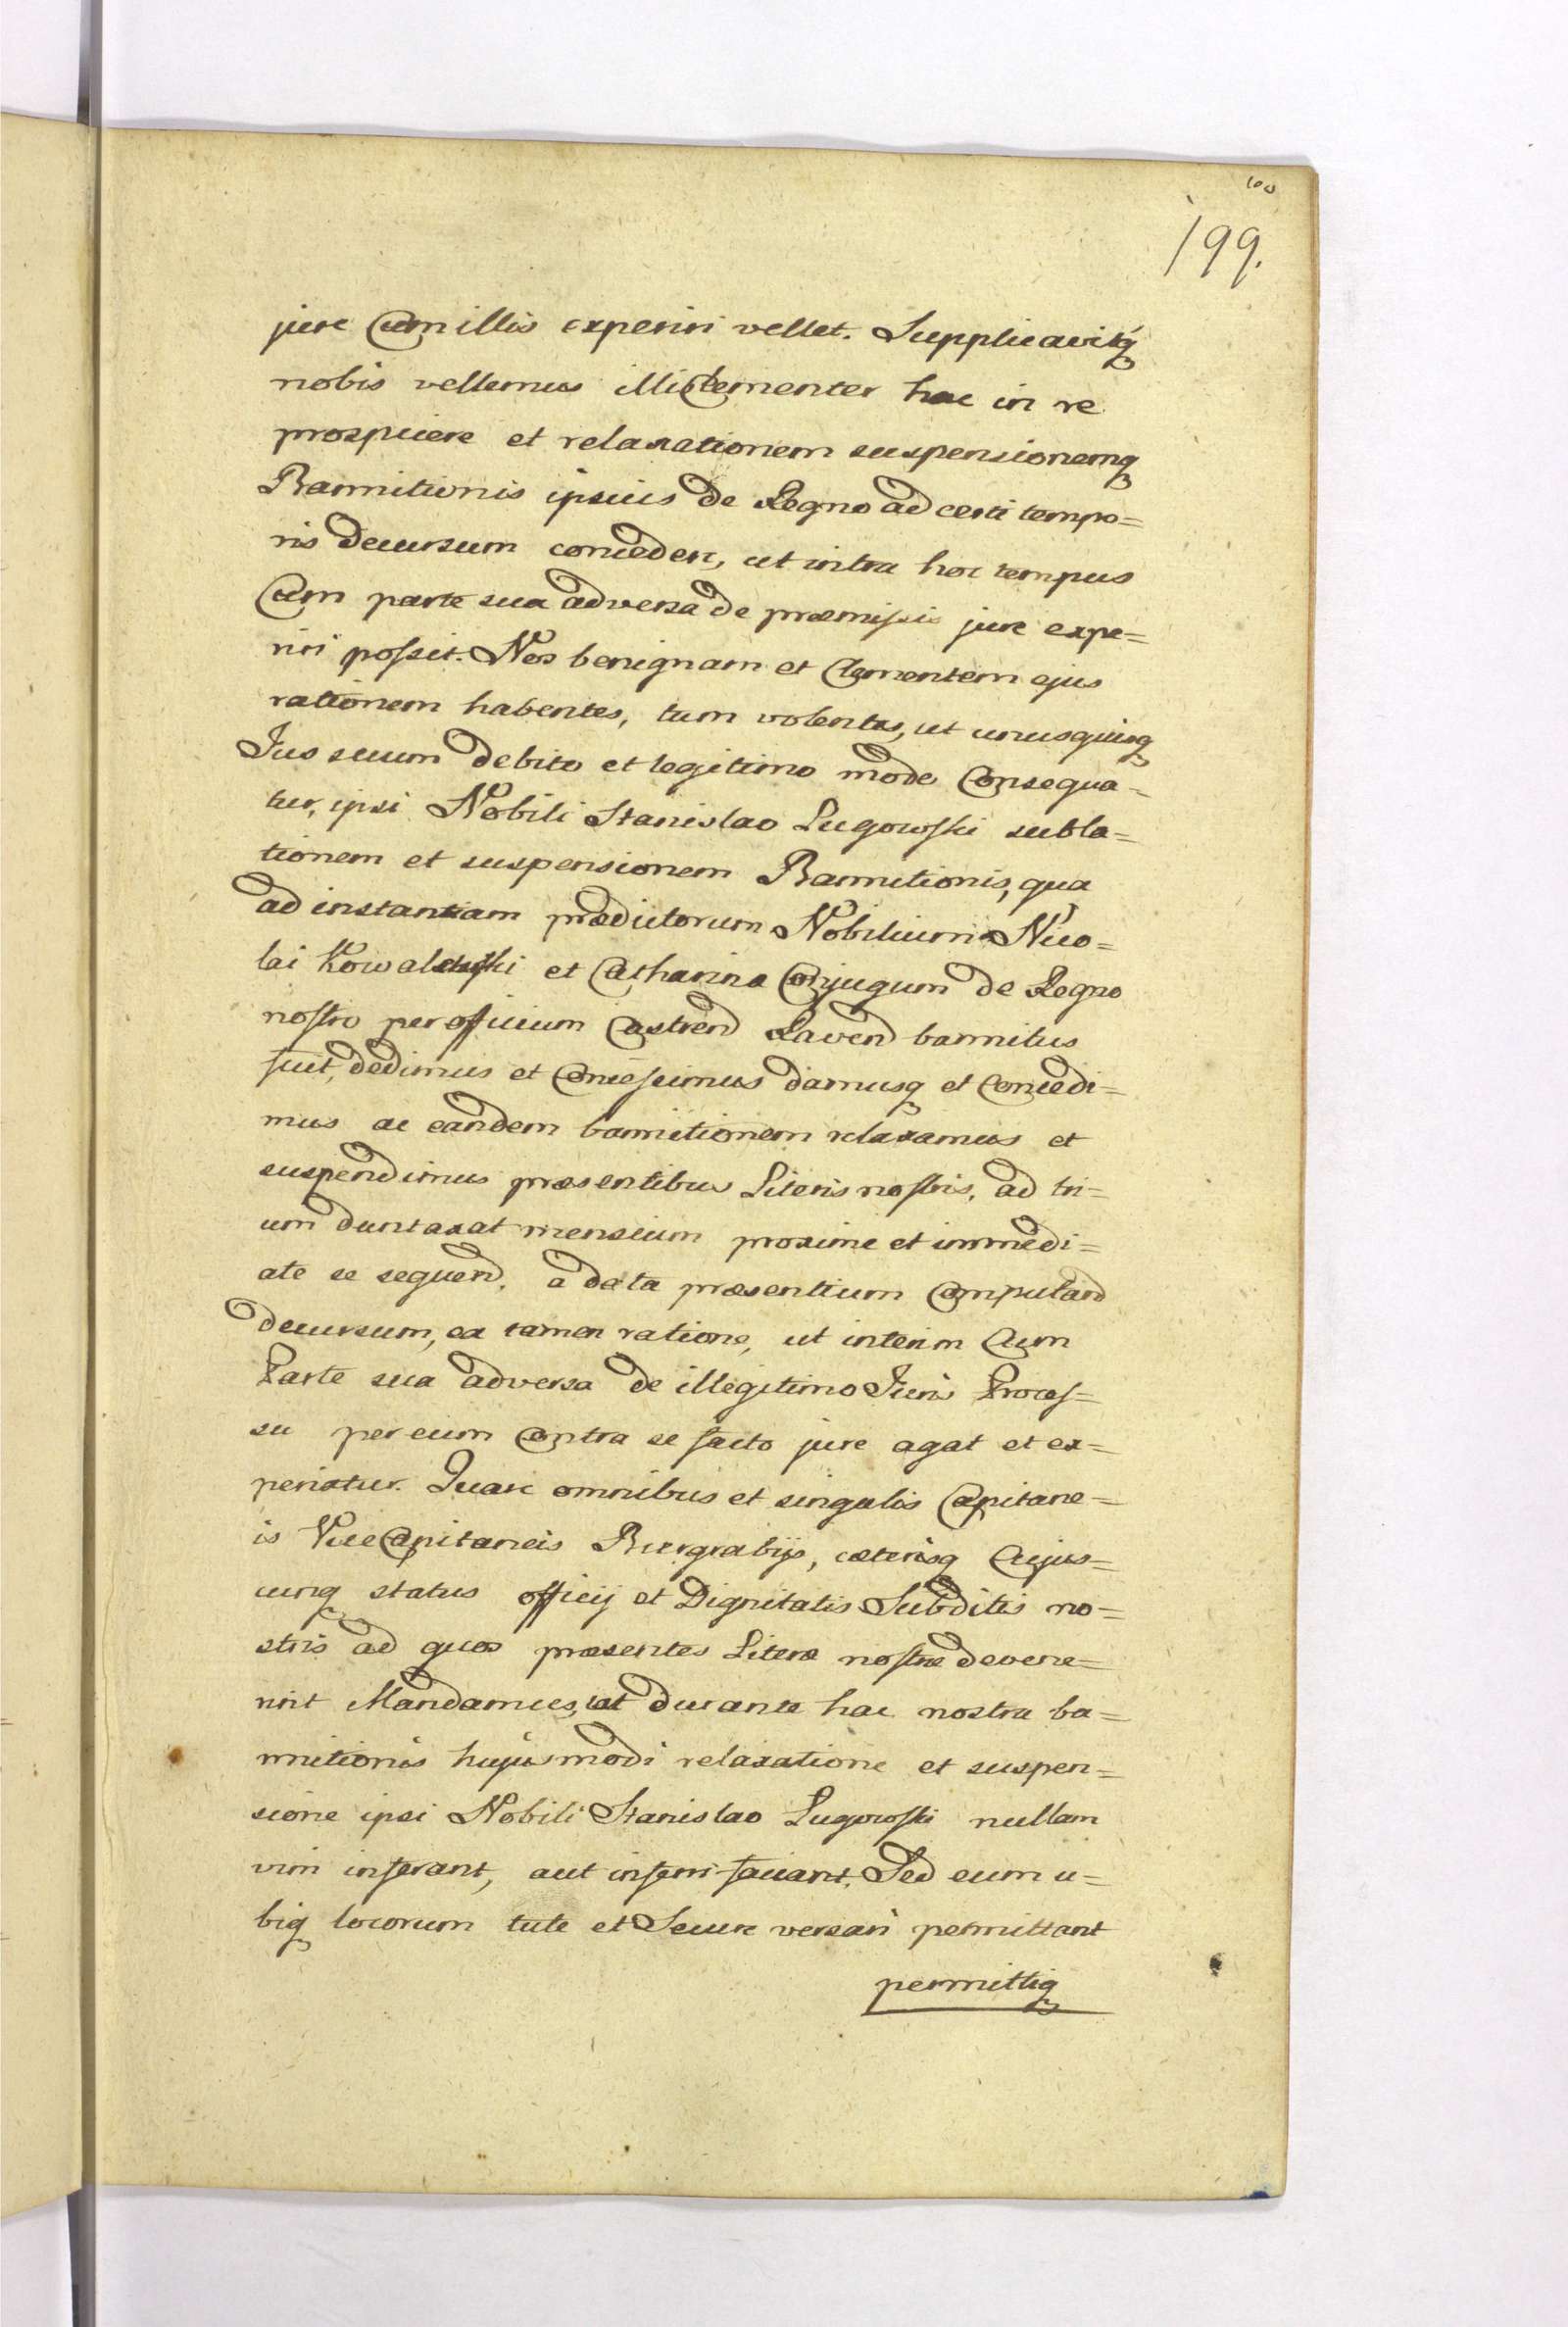 100
199.
jure Cum illis experiri vellet. Supplicavitq
nobis vellemus illi Clementer hac in re
prospicere et relaxationem suspensionemq
Bannitionis ipsius de Regno ad certi tempo=
ris decursum concedere, ut intra hoc tempus
Cum parte sua adversa de præmissis jure expe=
riri possit. Nos benignam et Clementem ejus
rationem habentes, tum volentes, ut unusquisq
Jus suum debito et legitimo modo Consequa=
tur, ipsi Nobili Stanislao Lugowski subla=
tionem et suspensionem Bannitionis, qua
ad instantiam prædictorum Nobilium Nico=
lai Kowalewski et Catharina Conjugum de Regno
nostro per officium Castrend Raven̄d bannitus
fuit, dedimus et Concessimus damusq et Concedi=
mus ac eandem bannitionem relaxamus et
suspendimus præsentibus Literis nostris, ad tri=
um duntaxat mensium proxime et immedi=
ate se sequend. a data præsentium Computand
decursum, ea tamen ratione, ut interim Cum
Parte sua adversa de illegitimo Juris Proces=
su per eum Contra se facto jure agat et ex=
periatur. Quare omnibus et singulis Capitane=
is Vice Capitaneis Burgrabijs, cæterisq Cujus=
cunq status officij et Dignitatis Subditis no=
stris ad quos præsentes Literæ nostræ devene=
rint Mandamus, ut durante hac nostra ba=
nnitionis hujusmodi relaxatione et suspen=
sione ipsi Nobili Stanislao Lugowski nullam
vim inferant, aut inferri faciant. Sed eum u=
biq locorum tute et Secure versari permittant
permittiq